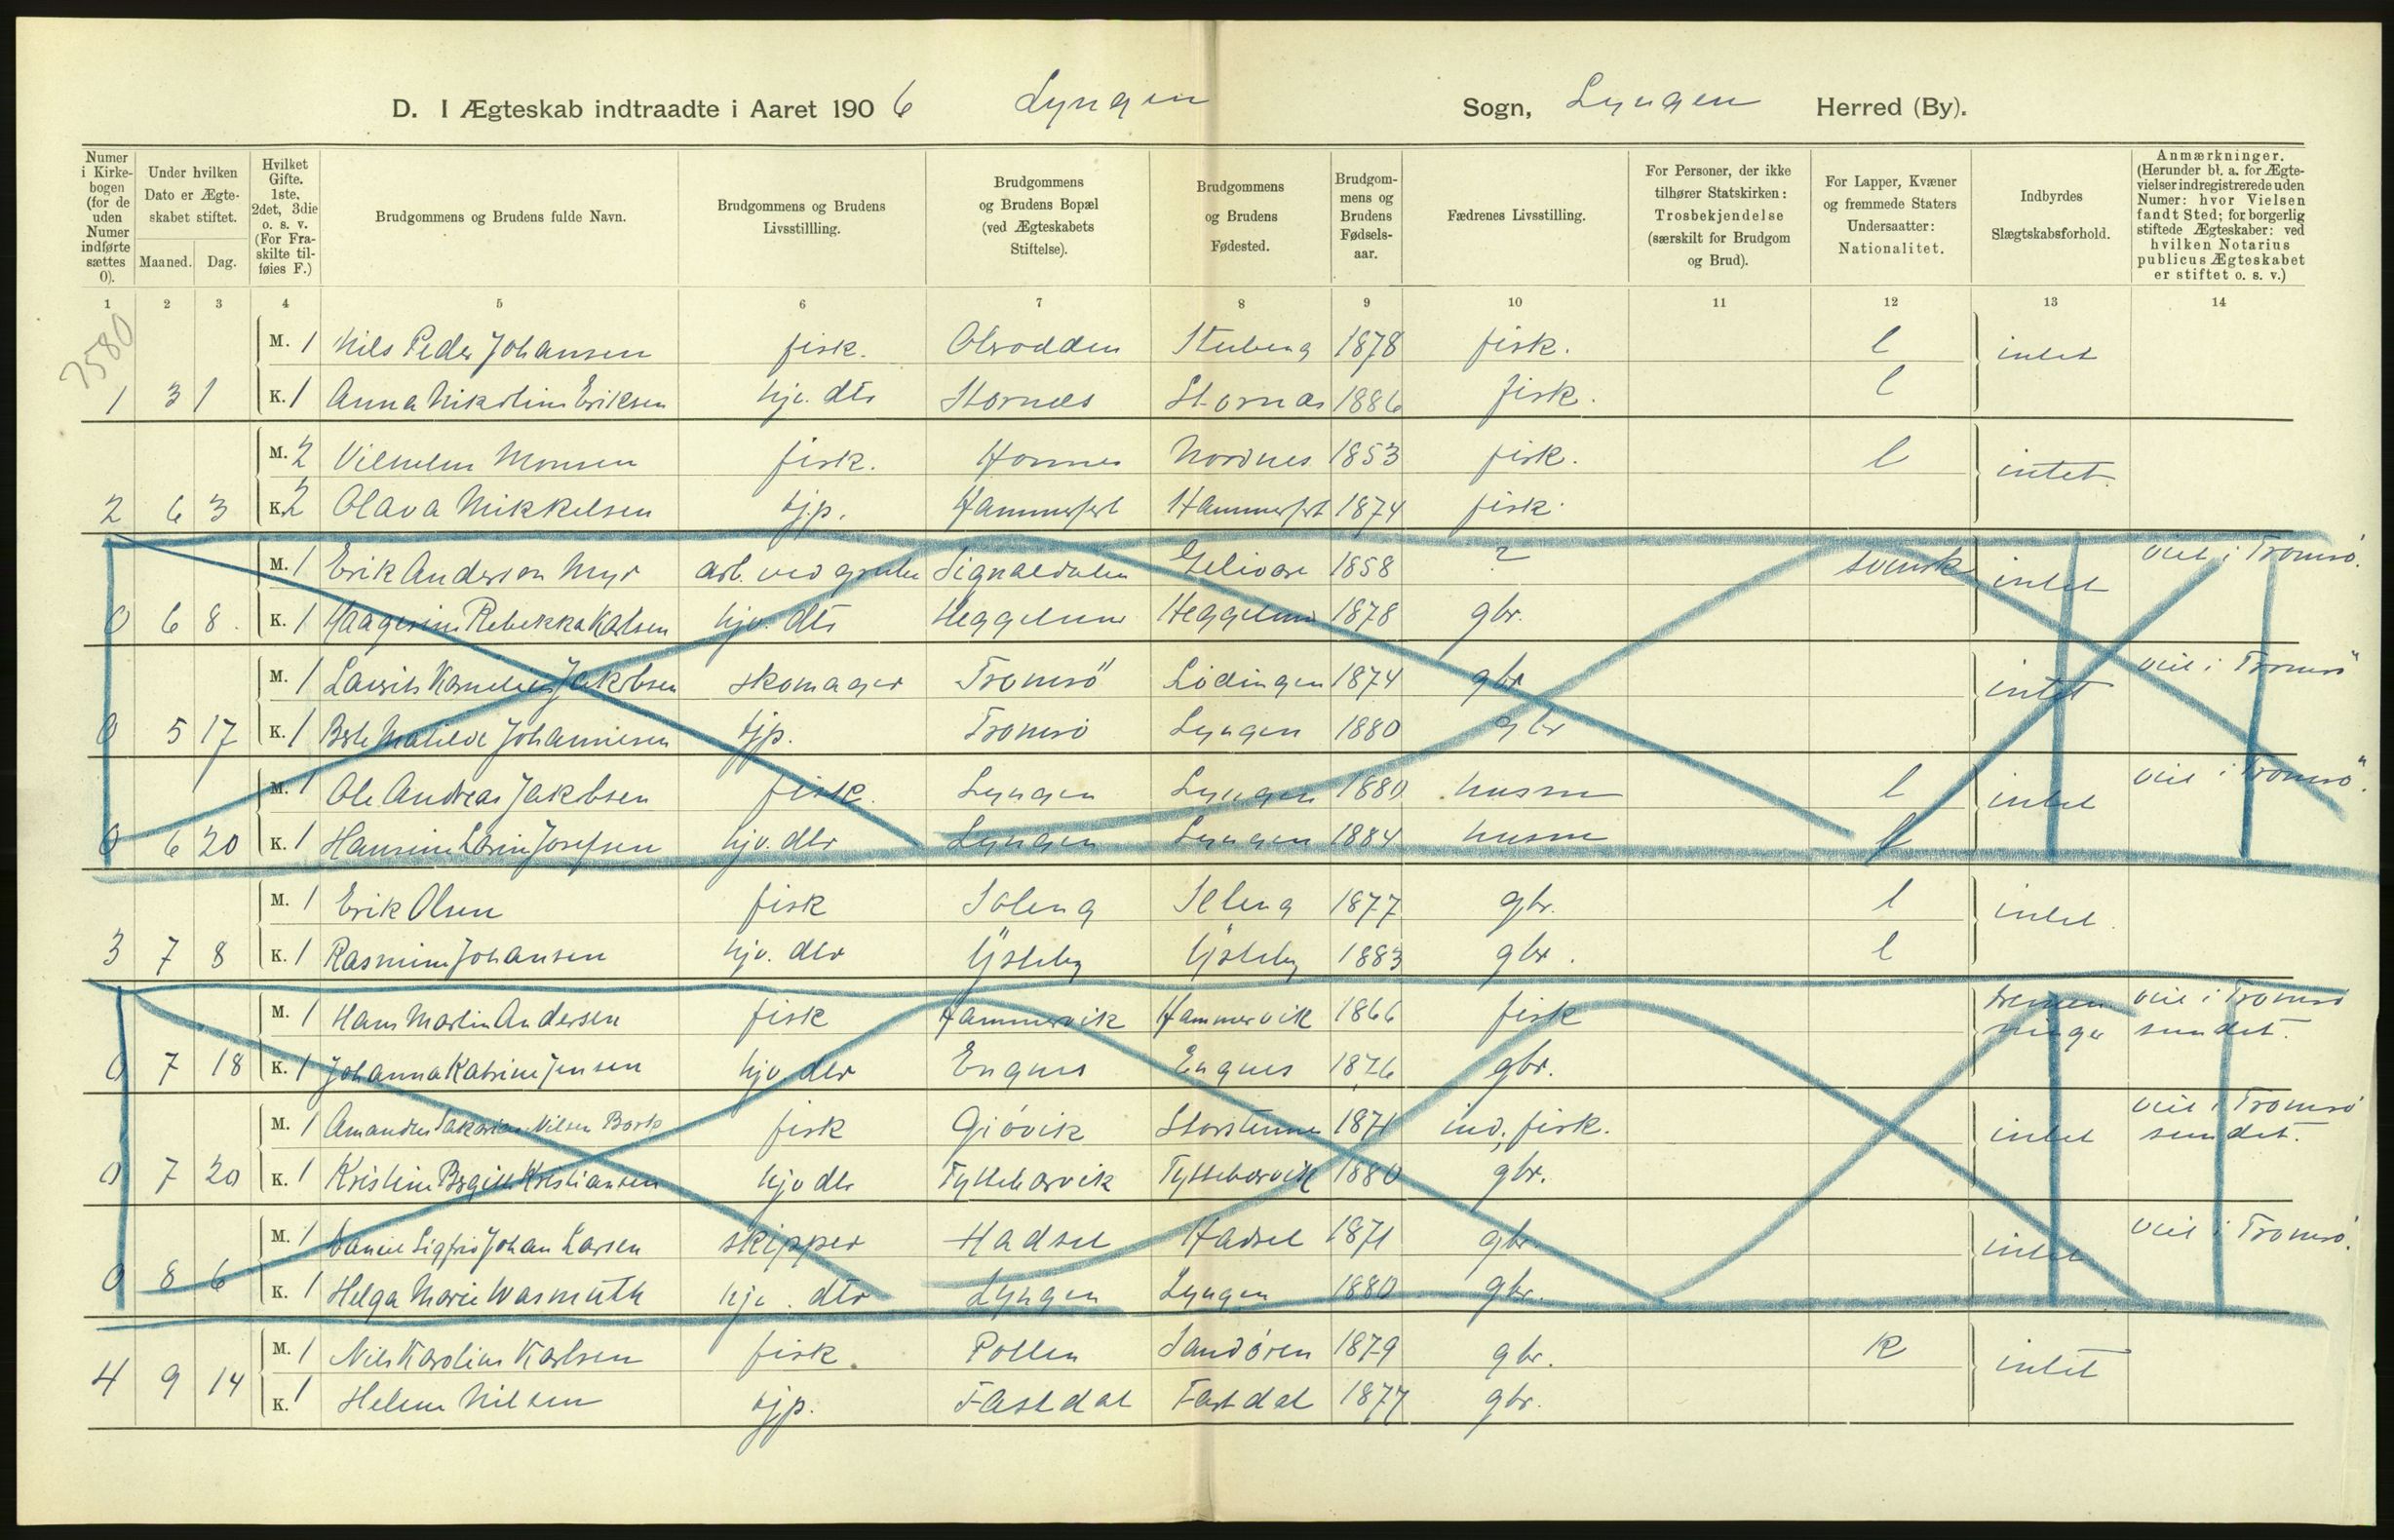 D. I Ægteskab indtraadte i Aaret 1906 Lyngen Sogn, Lyngen Herred (By).
Numer i Kirkebogen (for de uden Numer indførte sættes 0). Under hvilken Dato er Ægteskabet stiftet. Maaned. Dag. Hvilket Gifte. 1ste, 2det, 3die o. s. v. (For Fraskilte tilføies F.) Brudgommens og Brudens fulde Navn. Brudgommens og Brudens Livsstillling. Brudgommens og Brudens Bopæl (ved Ægteskabets Stiftelse). Brudgommens og Brudens Fødested. Brudgommens og Brudens Fødselsaar. Fædrenes Livsstilling. For Personer, der ikke tilhører Statskirken: Trosbekjendelse (særskilt for Brudgom og Brud). For Lapper, Kvæner og fremmede Staters Undersaatter: Nationalitet. Indbyrdes Slægtskabsforhold. Anmærkninger. (Herunder bl. a. for Ægtevielser indregistrerede uden Numer: hvor Vielsen fandt Sted; for borgerlig stiftede Ægteskaber: ved hvilken Notarius publicus Ægteskabet er stiftet o. s. v.)
1 2 3 4 5 6 7 8 9 10 11 12 13 14
7580
M. 1 Nils Peder Johansen fisk. 1878 fisk. l intet
1 3 1 K. 1 Anna Nikoline Eriksen hjv. dtr Stornes Stornes 1886 fisk. l
M. 2 Vilhelm Monsen fisk. Nordnes 1853 fisk. l intet.
2 6 3 K. 2 Olava Mikkelsen tjp. Hammerfest Hammerfest 1874 fisk.
M. 1 Erik Anderson Myr arb. ved gruber Signaldalen Gelivare 1858 ? svensk intet viet i Tromsö.
0 6 8. K. 1 Rebekka Karlsen hjv. dtr Heggelund Heggelund 1878 gbr.
M. 1 Laurits Kornelius Jakobsen skomager Tromsö Lödingen 1874 gbr intet viet i Tromsö
0 5 17 K. 1 Matilde Johannesen tjp. Tromsö Lyngen 1880 gbr
M. 1 Ole Andreas Jakobsen fisk. Lyngen Lyngen 1880 husm l intet viet i Tromsö.
0 6 20 K. 1 Hansine Josefsen hjv. dtr Lyngen Lyngen 1884 husm l
M. 1 Erik Olsen fisk Soleng 1877 gbr. l intet.
3 7 8 K. 1 Rasmine Johansen hjv. dtr 1883 gbr. l
M. 1 Hans Martin Andersen fisk Hammervik Hammervik 1866 fisk tremenninger viet i Tromsö
sundet.
0 7 18 K. 1 Johanna Katrine Jensen hjv dtr Engnes Engnes 1876 gbr.
M. 1 Amandus Sakarias Nilsen fisk Gjövik Storsteinnes 1871 ind. fisk. intet viet i Tromsö
sundet.
0 7 20 K. 1 Kristine Kristiansen hjv dtr Tyttebærvik Tyttebærvik 1880 gbr.
M. 1 Daniel Sigfrid Johan Larsen skipper Hadsel Hadsel 1871 gbr intet viet i Tromsö.
0 8 6 K. 1 Helga Marie Wasmuth hjv. dtr Lyngen Lyngen 1880 gbr.
M. 1 Nils Karolius Karlsen fisk. Pollen Sandören 1879 gbr. k intet
4 9 14 K. 1 Helene Nilsen tjp. Fastdal Fastdal 1877 gbr.